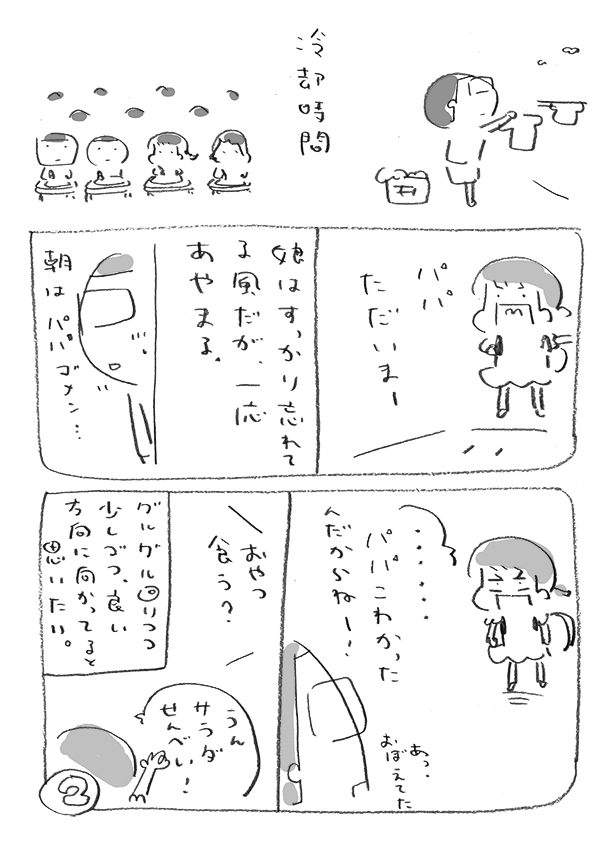 冷却時間
パパ
ただいまー
娘はすっかり忘れて
る風だが、一応
あやまる。
朝はパパゴメン…
……
パパこわかった
んだからねー！
あっ、
おぼえてた
おやつ
食う？
うん
サラダ
せんべい！
グルグル回りつつ
少しづつ、良い
方向に向かってると
思いたい。
2